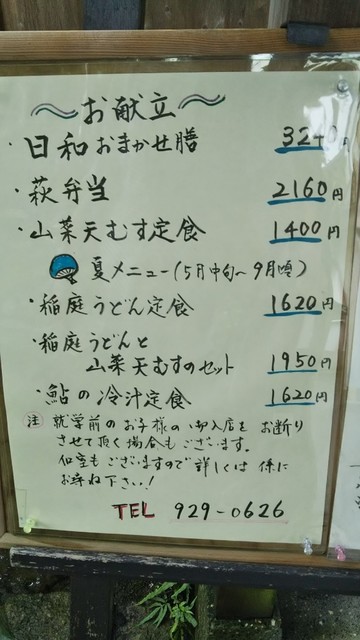 〜お献立〜
・日和おまかせ膳 3240円
・萩弁当 2160円
・山菜天むす定食 1400円
夏メニュー(5月中旬〜9月頃)
・稲庭うどん定食 1620円
・稲庭うどんと
山菜天むすのセット 1950円
・鮎の冷汁定食 1620円
注 就学前のお子様の御入店を お断り
させて頂く場合もございます。
個室もございますので詳しくは係に
お尋ね下さい!
TEL 929-0626